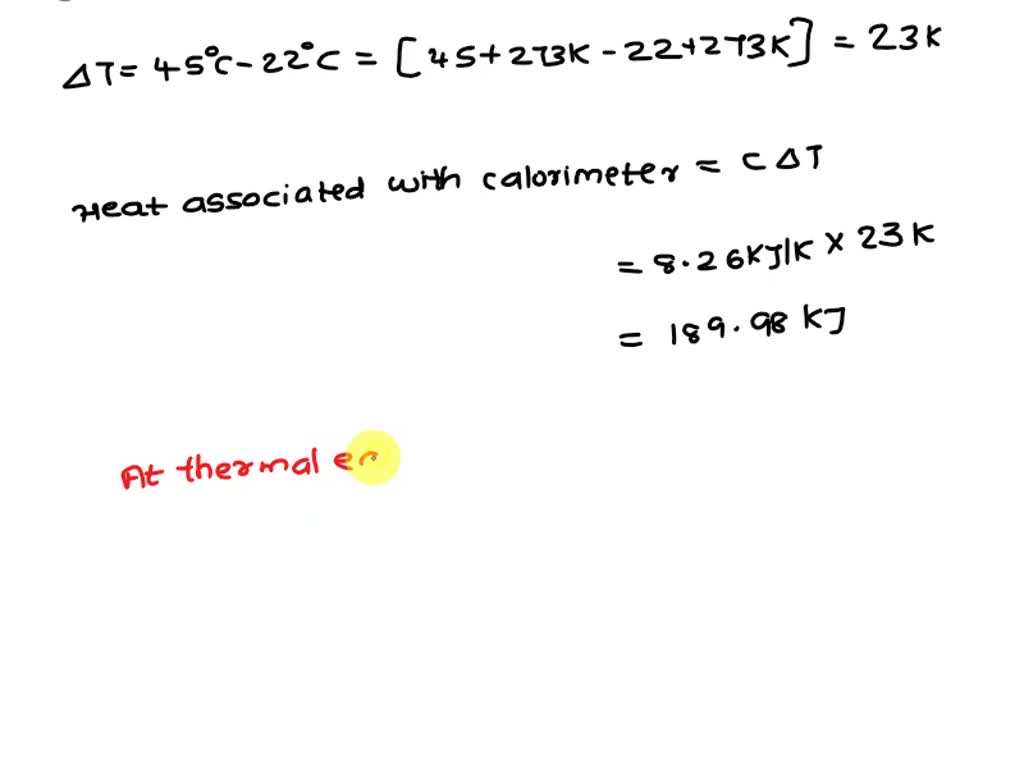 ΔT = 45°C - 22°C = [45+273K - 22+273K] = 23K
Heat associated with calorimeter = CΔT
= 8.26KJ/K × 23K
= 189.98 KJ
At thermal